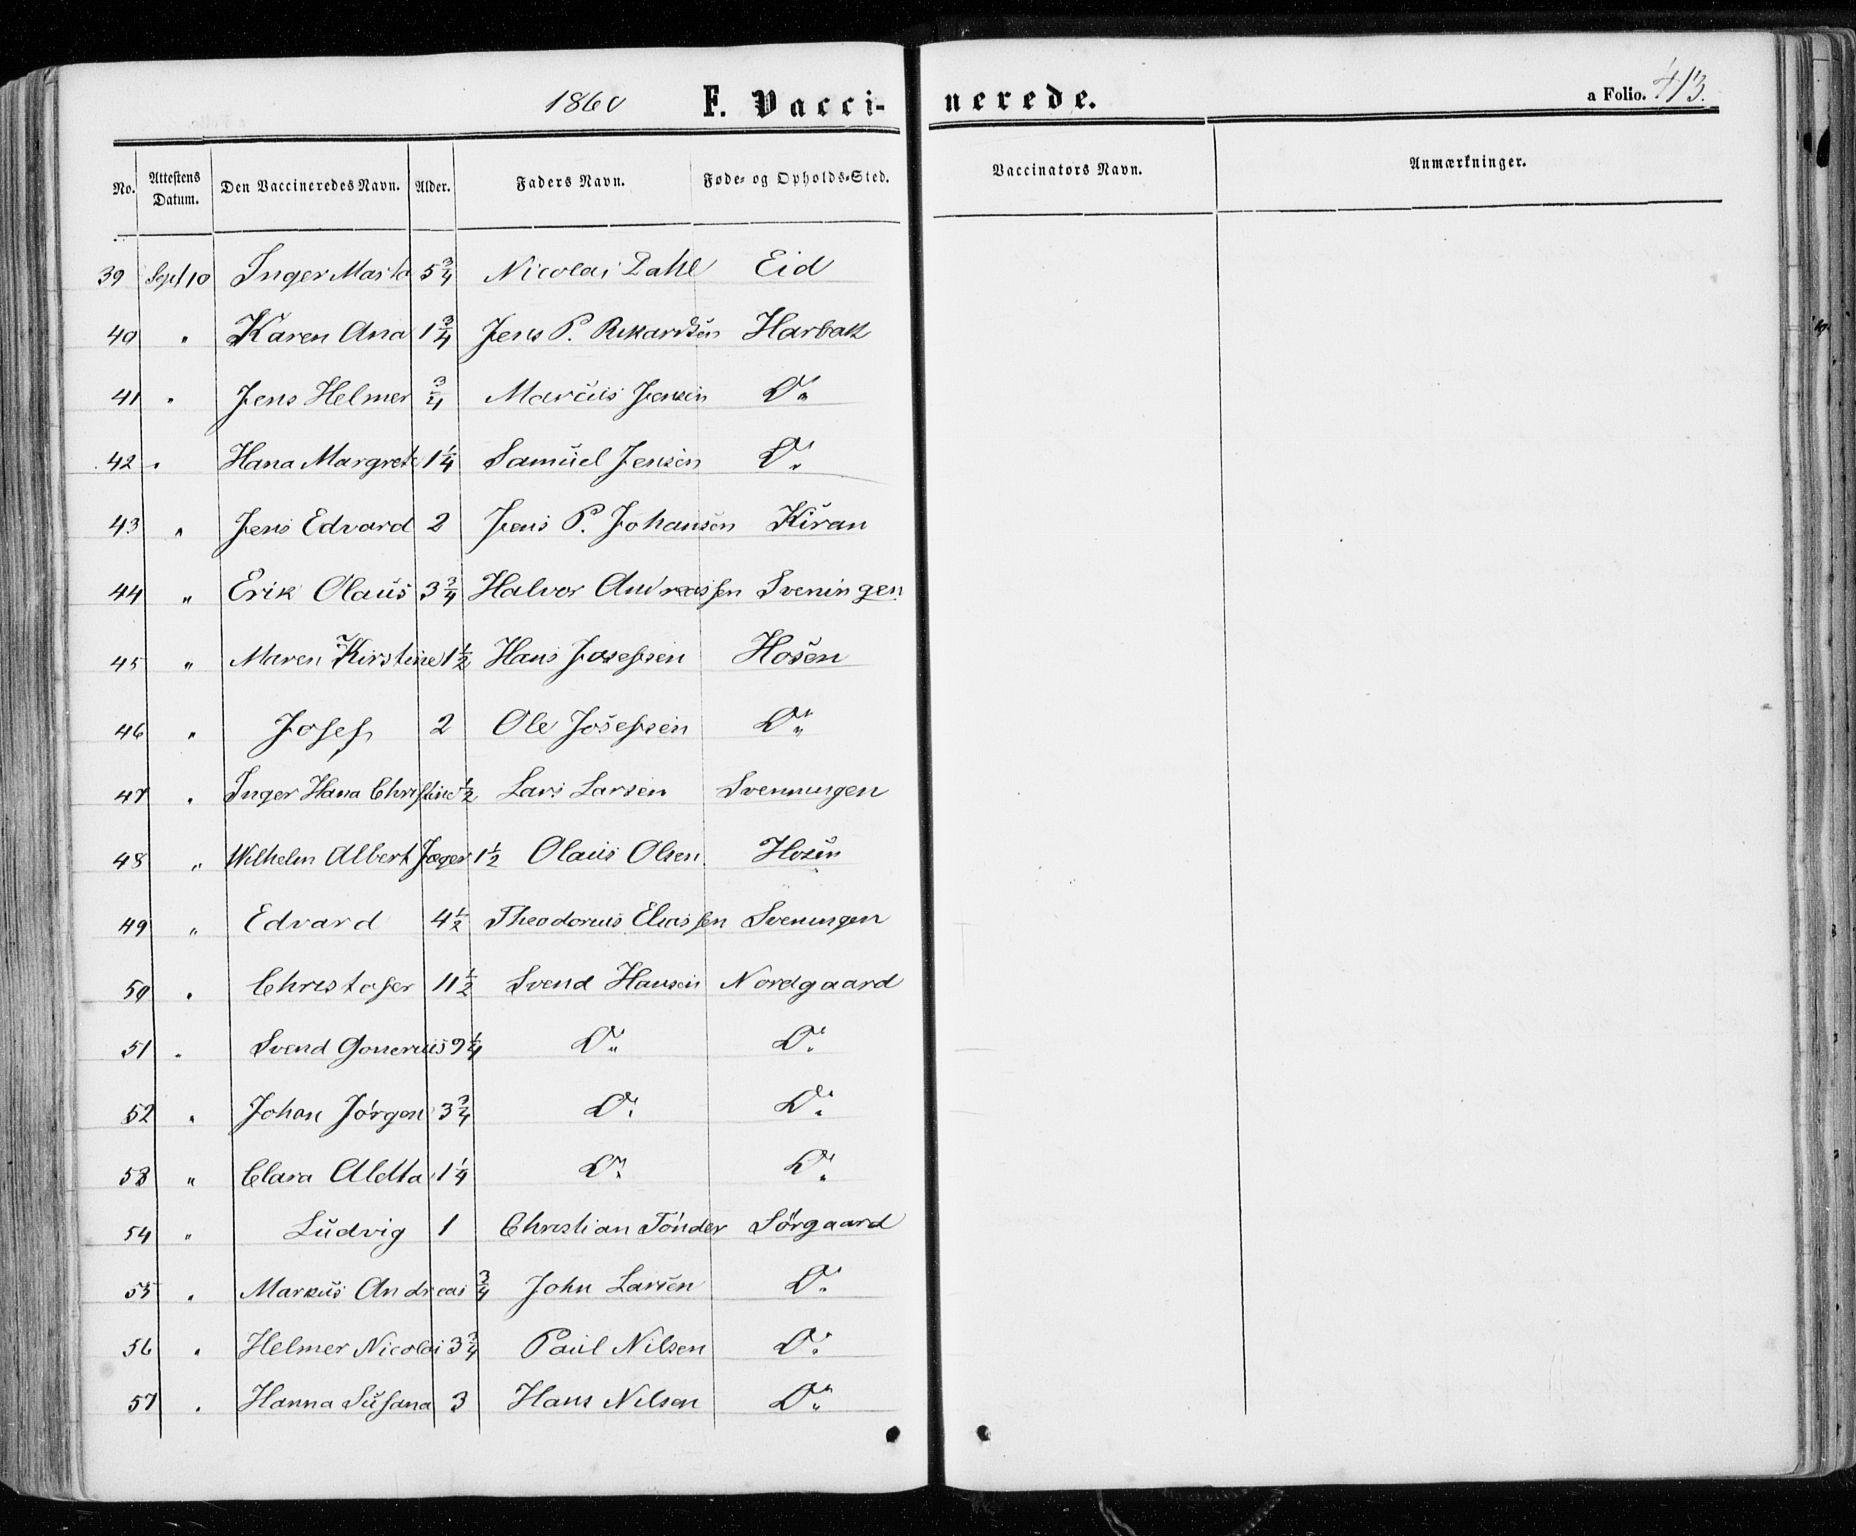 1860 F. Vaccinerede. a Folio. 413.
No. Attestens Datum. Den Vaccineredes Navn. Alder. Faders Navn. Føde- og Opholds-Sted. Vaccinators Navn. Anmærkninger.
39 Sept 10 Inger Marta 5 3/4 Nicolai Dahl Eid
40 " Karen Ana 1 3/4 Jens P. Rikardsen Harbak
41 " Jens Helmer 3/4 Marcus Jensen Do
42 " Hana Margrete 1 1/4 Samuel Jensen Do
43 " Jens Edvard 2 Jens P. Johansen Kiran
44 " Erik Olaus 3 3/4 Halvor Andreassen Sveningen
45 " Maren Kirstine 1 1/2 Hans Josefsen Hosen
46 " Josef 2 Ole Josefsen Do
47 " Inger Hana Christine 1/2 Lars Larsen Svenningen
48 " Wilhelm Albert Jæger 1 1/2 Olaus Olsen Hosen
49 " Edvard 4 1/2 Theodorus Eliassen Sveningen
50 " Christofer 11 1/2 Svend Hansen Nordgaard
51 " Svend Gonerius 9 1/4 Do Do
52 " Johan Jørgen 3 3/4 Do Do
53 " Clara Aletta 1 1/4 Do Do
54 " Ludvig 1 Christian Tønder Sørgaard
55 " Markus Andreas 3/4 John Larsen Do
56 " Helmer Nicolai 3 3/4 Paul Nilsen Do
57 " Hanna Susana 3 Hans Nilsen Do